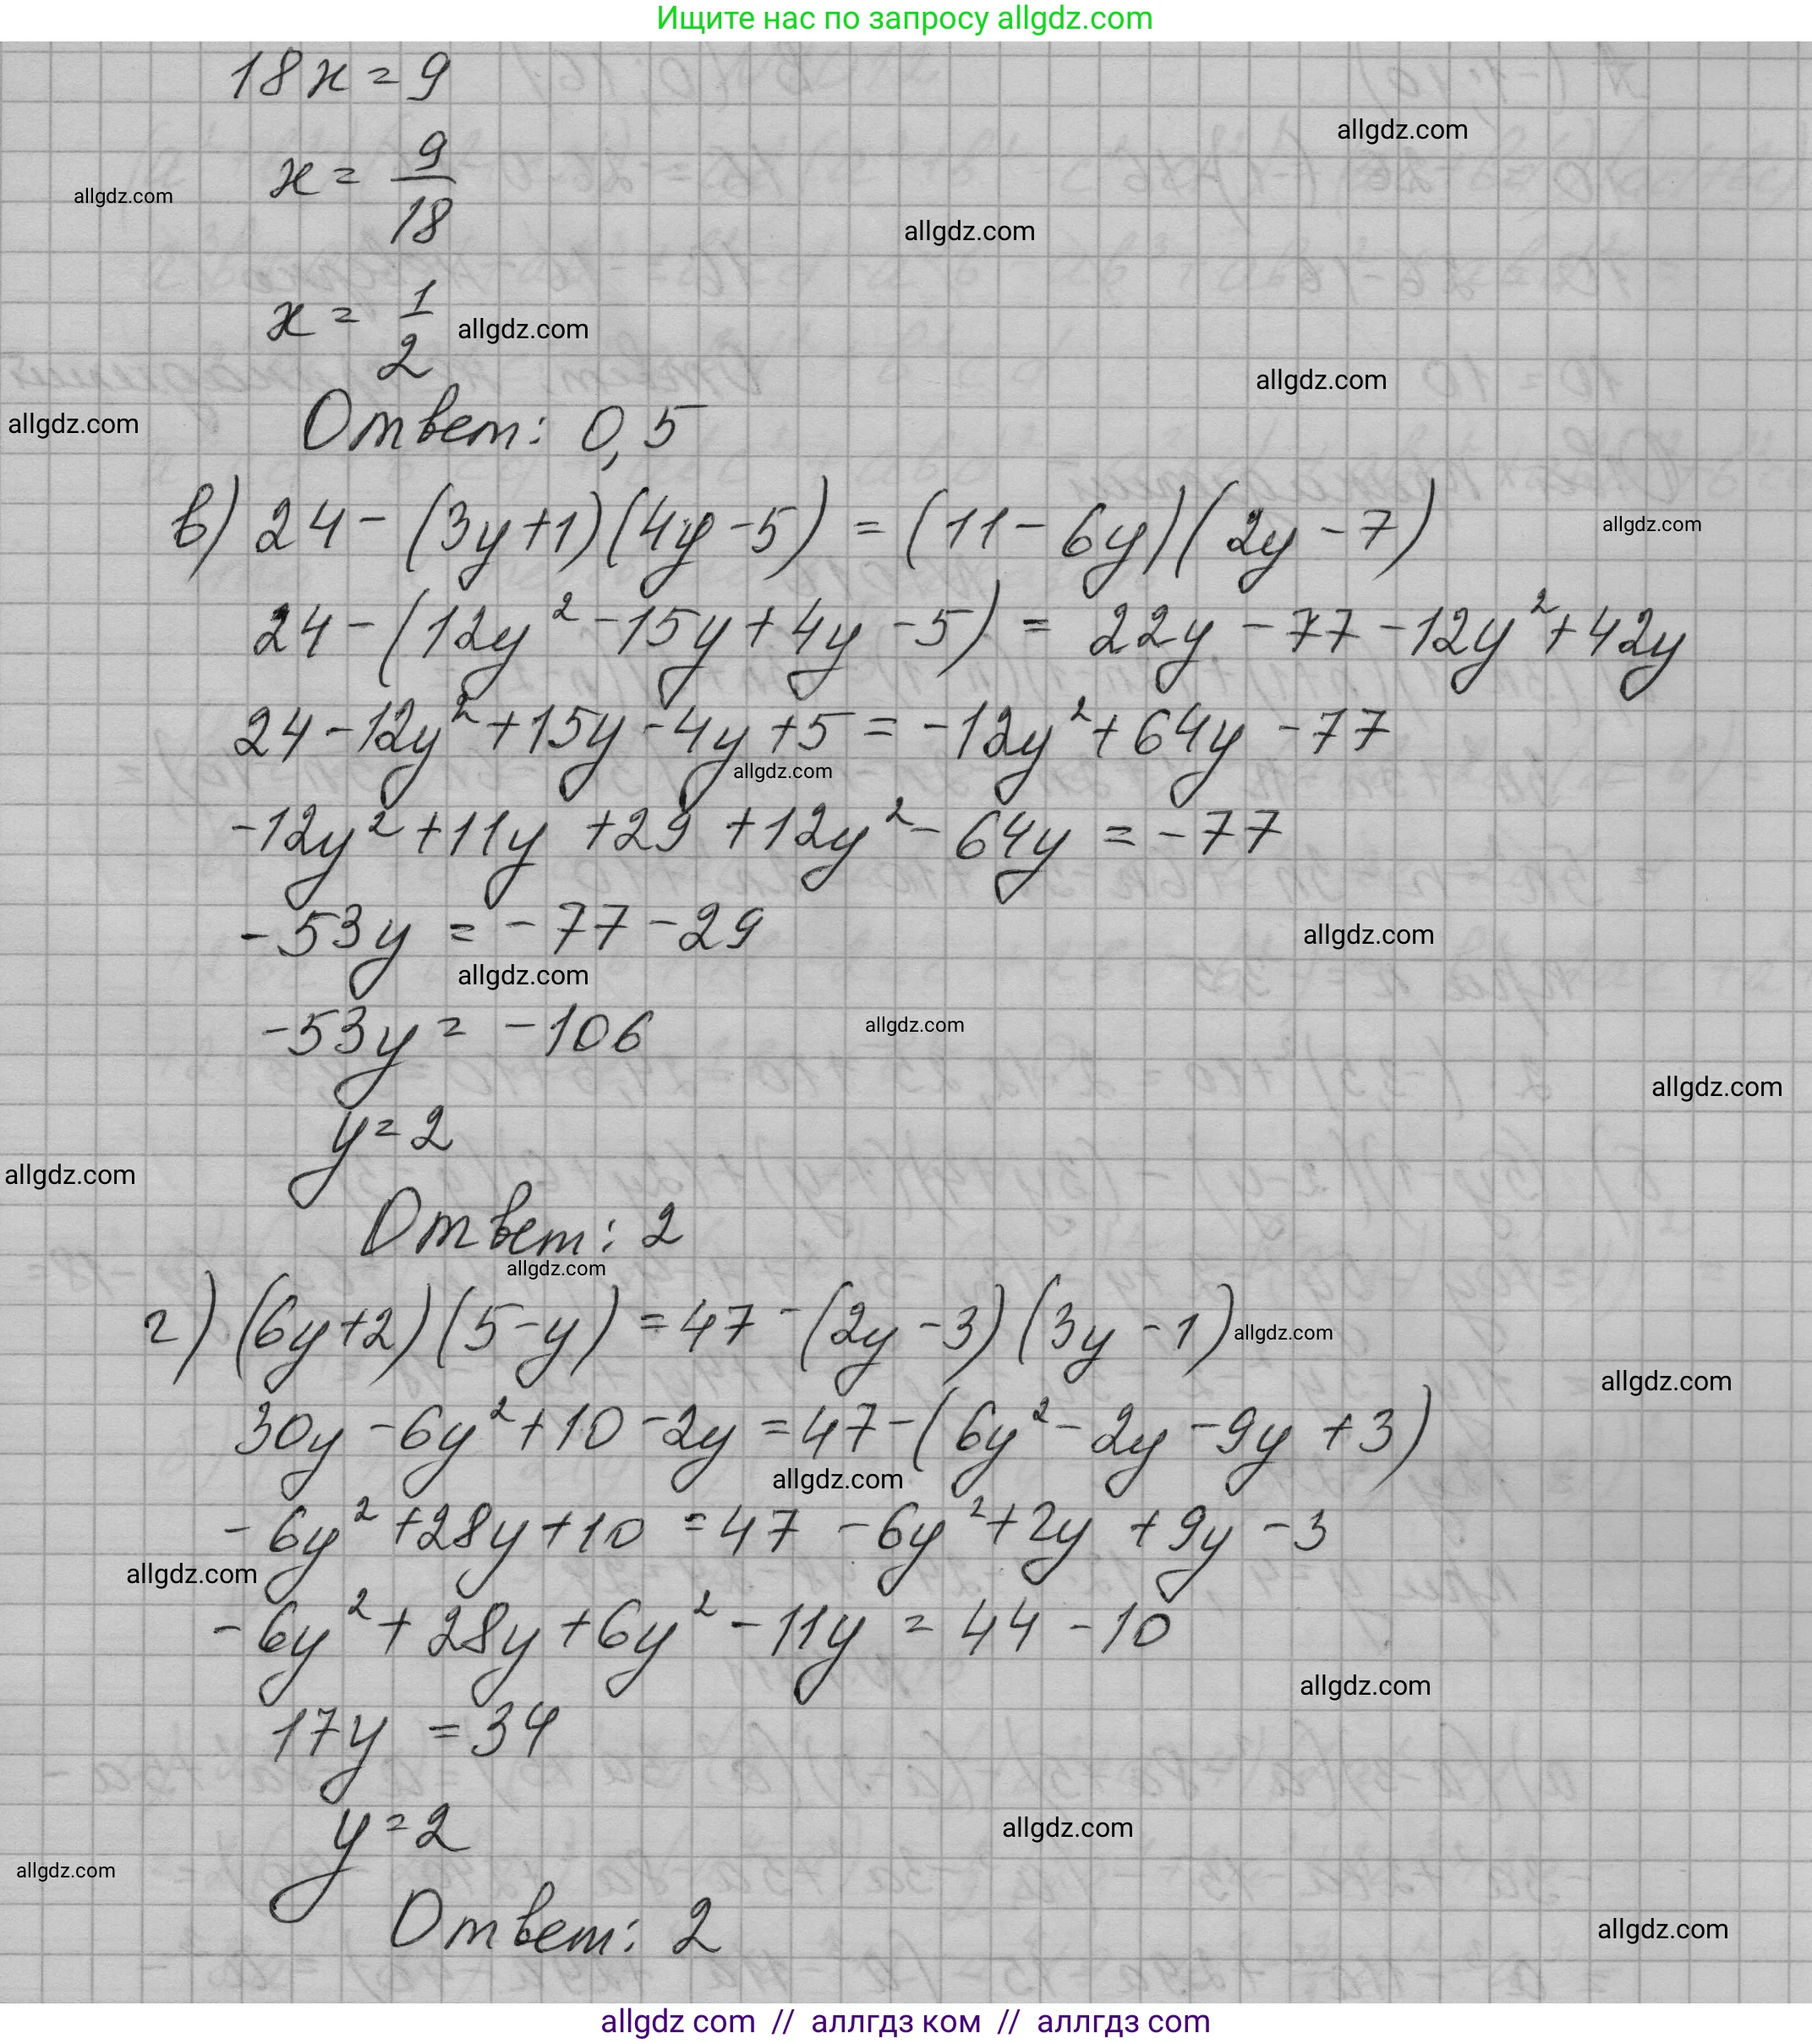 Ищите нас по запросу allgdz.com
18x = 9
allgdz.com
x = 9/18
allgdz.com
allgdz.com
x = 1/2
allgdz.com
allgdz.com
Ответ: 0,5
allgdz.com
в) 24 - (3y+1)(4y-5) = (11-6y)(2y-7)
allgdz.com
24 - (12y² - 15y + 4y - 5) = 22y - 77 - 12y² + 42y
24 - 12y² + 15y - 4y + 5 = -12y² + 64y - 77
allgdz.com
-12y² + 11y + 29 + 12y² - 64y = -77
-53y = -77 - 29
allgdz.com
allgdz.com
-53y = -106
allgdz.com
allgdz.com
y = 2
allgdz.com
Ответ: 2
allgdz.com
г) (6y+2)(5-y) = 47 - (2y-3)(3y-1)
allgdz.com
allgdz.com
30y - 6y² + 10 - 2y = 47 - (6y² - 2y - 9y + 3)
allgdz.com
-6y² + 28y + 10 = 47 - 6y² + 2y + 9y - 3
allgdz.com
-6y² + 28y + 6y² - 11y = 44 - 10
allgdz.com
17y = 34
y = 2
allgdz.com
allgdz.com
Ответ: 2
allgdz.com
allgdz com // аллгдз ком // аллгдз com